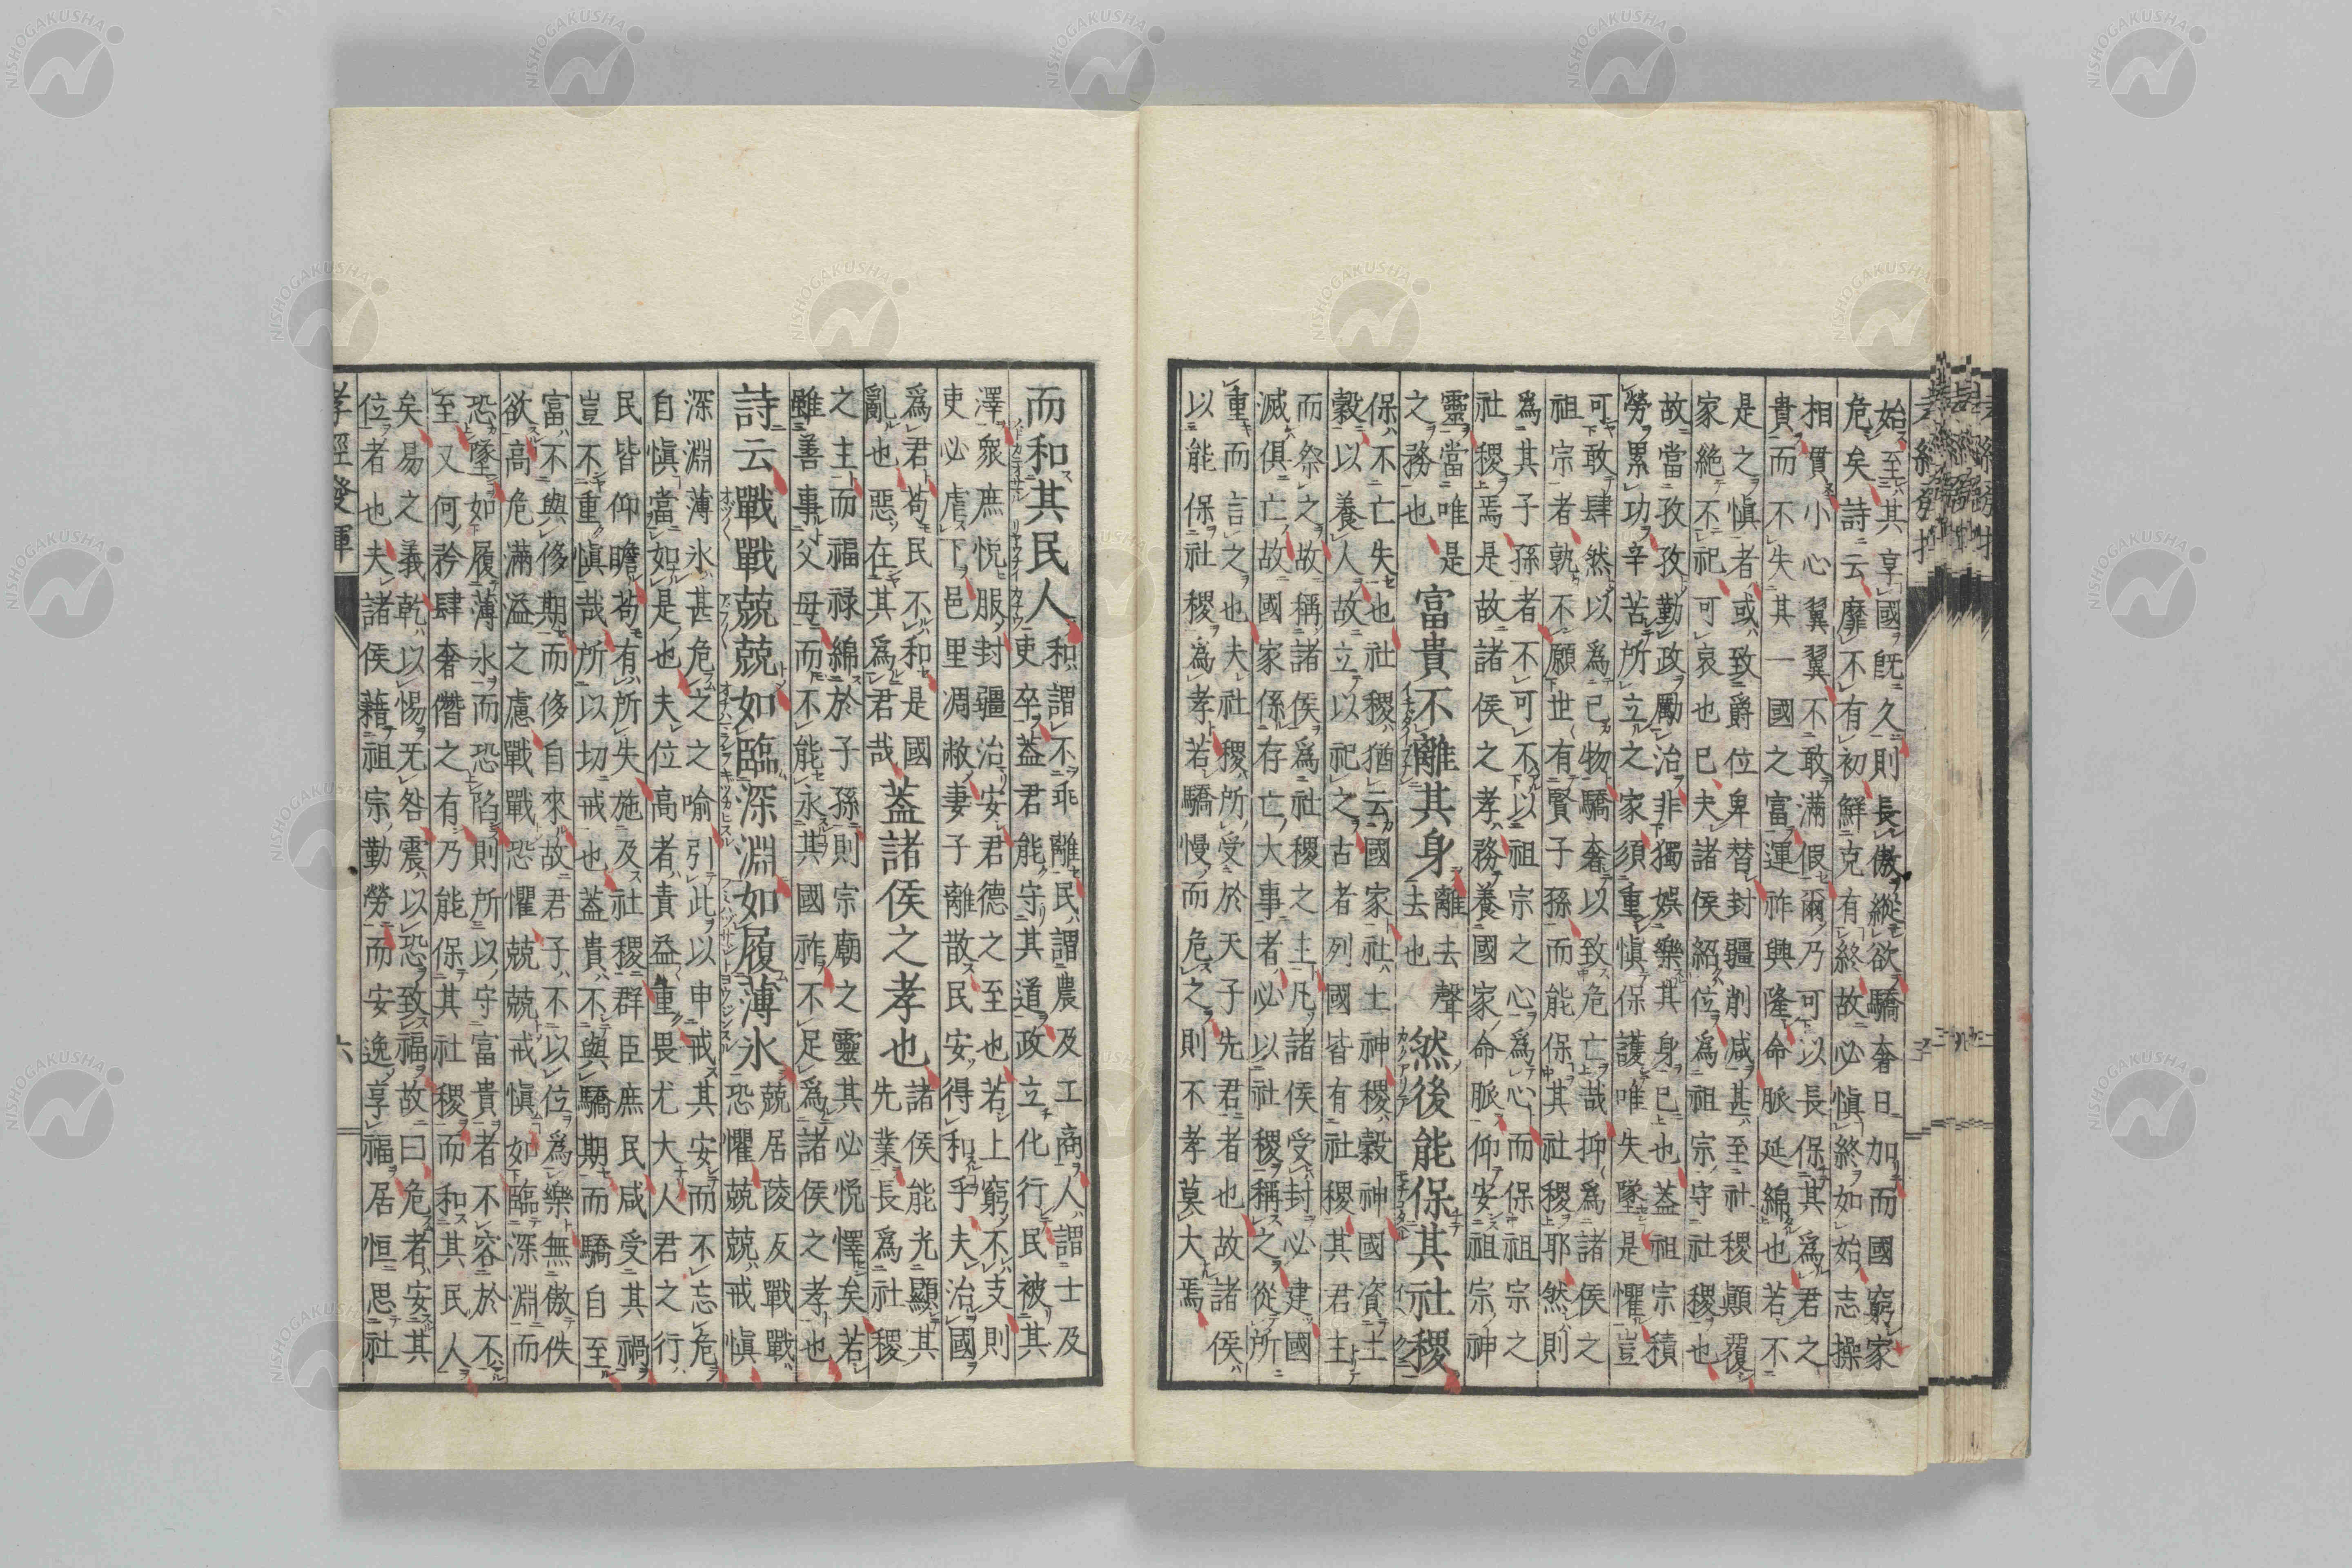 始至其享國既久則長傲縱欲驕奢日加而國窮家
危矣詩云靡不有初鮮克有終故必愼終如始志操
相貫小心翼翼不敢滿假爾乃可以長保其爲君之
貴而不失其一國之富運祚興隆命脈延綿也若不
是之愼者或致爵位卑替封疆削減甚至社稷顚覆
家絶不祀可哀也已夫諸侯紹位爲祖宗守社稷也
故當孜孜勤政勵治非獨娯樂其身已也蓋祖宗積
勞累功辛苦所立之家須重愼保護唯失墜是懼豈
可敢肆然以爲己物驕奢以致危亡哉抑爲諸侯之
祖宗者孰不願世有賢子孫而能保其社稷耶然則
爲其子孫者不可不以祖宗之心爲心而保祖宗之
社稷焉是故諸侯之孝務養國家命脈仰安祖宗神
靈當唯是
之務也
富貴不離其身
離去聲
去也
然後能保其社稷
保不亡失也社稷猶云國家社土神稷穀神國資土
穀以養人故立以祀之古者列國皆有社稷其君主
而祭之故稱諸侯爲社稷之主凡諸侯受封必建國
滅俱亡故國家係存亡大事者必以社稷稱之從所
重而言之也夫社稷所受於天子先君者也故諸侯
以能保社稷爲孝若驕慢而危之則不孝莫大焉
而和其民人
和謂不乖離民謂農及工商人謂士及
吏卒蓋君能守其道政立化行民被其
澤衆庶悦服封疆治安君德之至也若上窮不支則
吏必虐下邑里凋敝妻子離散民安得和乎夫治國
爲君苟民不和是國
亂也惡在其爲君哉
蓋諸侯之孝也
諸侯能光顯其
先業長爲社稷
之主而福祿綿於子孫則宗廟之靈其必悦懌矣若
雖善事父母而不能永其國祚不足爲諸侯之孝也
詩云戰戰兢兢如臨深淵如履薄氷
兢居陵反戰戰
恐懼兢兢戒愼
深淵薄氷甚危之之喩引此以申戒其安而不忘危
自愼當如是也夫位高者責益重畏尤大人君之行
民皆仰瞻苟有所失施及社稷群臣庶民咸受其禍
豈不重愼哉所以切戒也蓋貴不與驕期而驕自至
富不與侈期而侈自來故君子不以位爲樂無傲佚
欲高危滿溢之慮戰戰恐懼兢兢戒愼如臨深淵而
恐墜如履薄氷而恐陷則所以守富貴者不容於不
至又何矜肆奢僭之有乃能保其社稷而和其民人
矣易之義乾以惕无咎震以恐致福故曰危者安其
位者也夫諸侯藉祖宗勤勞而安逸享福居恒思社
孝經發揮
六